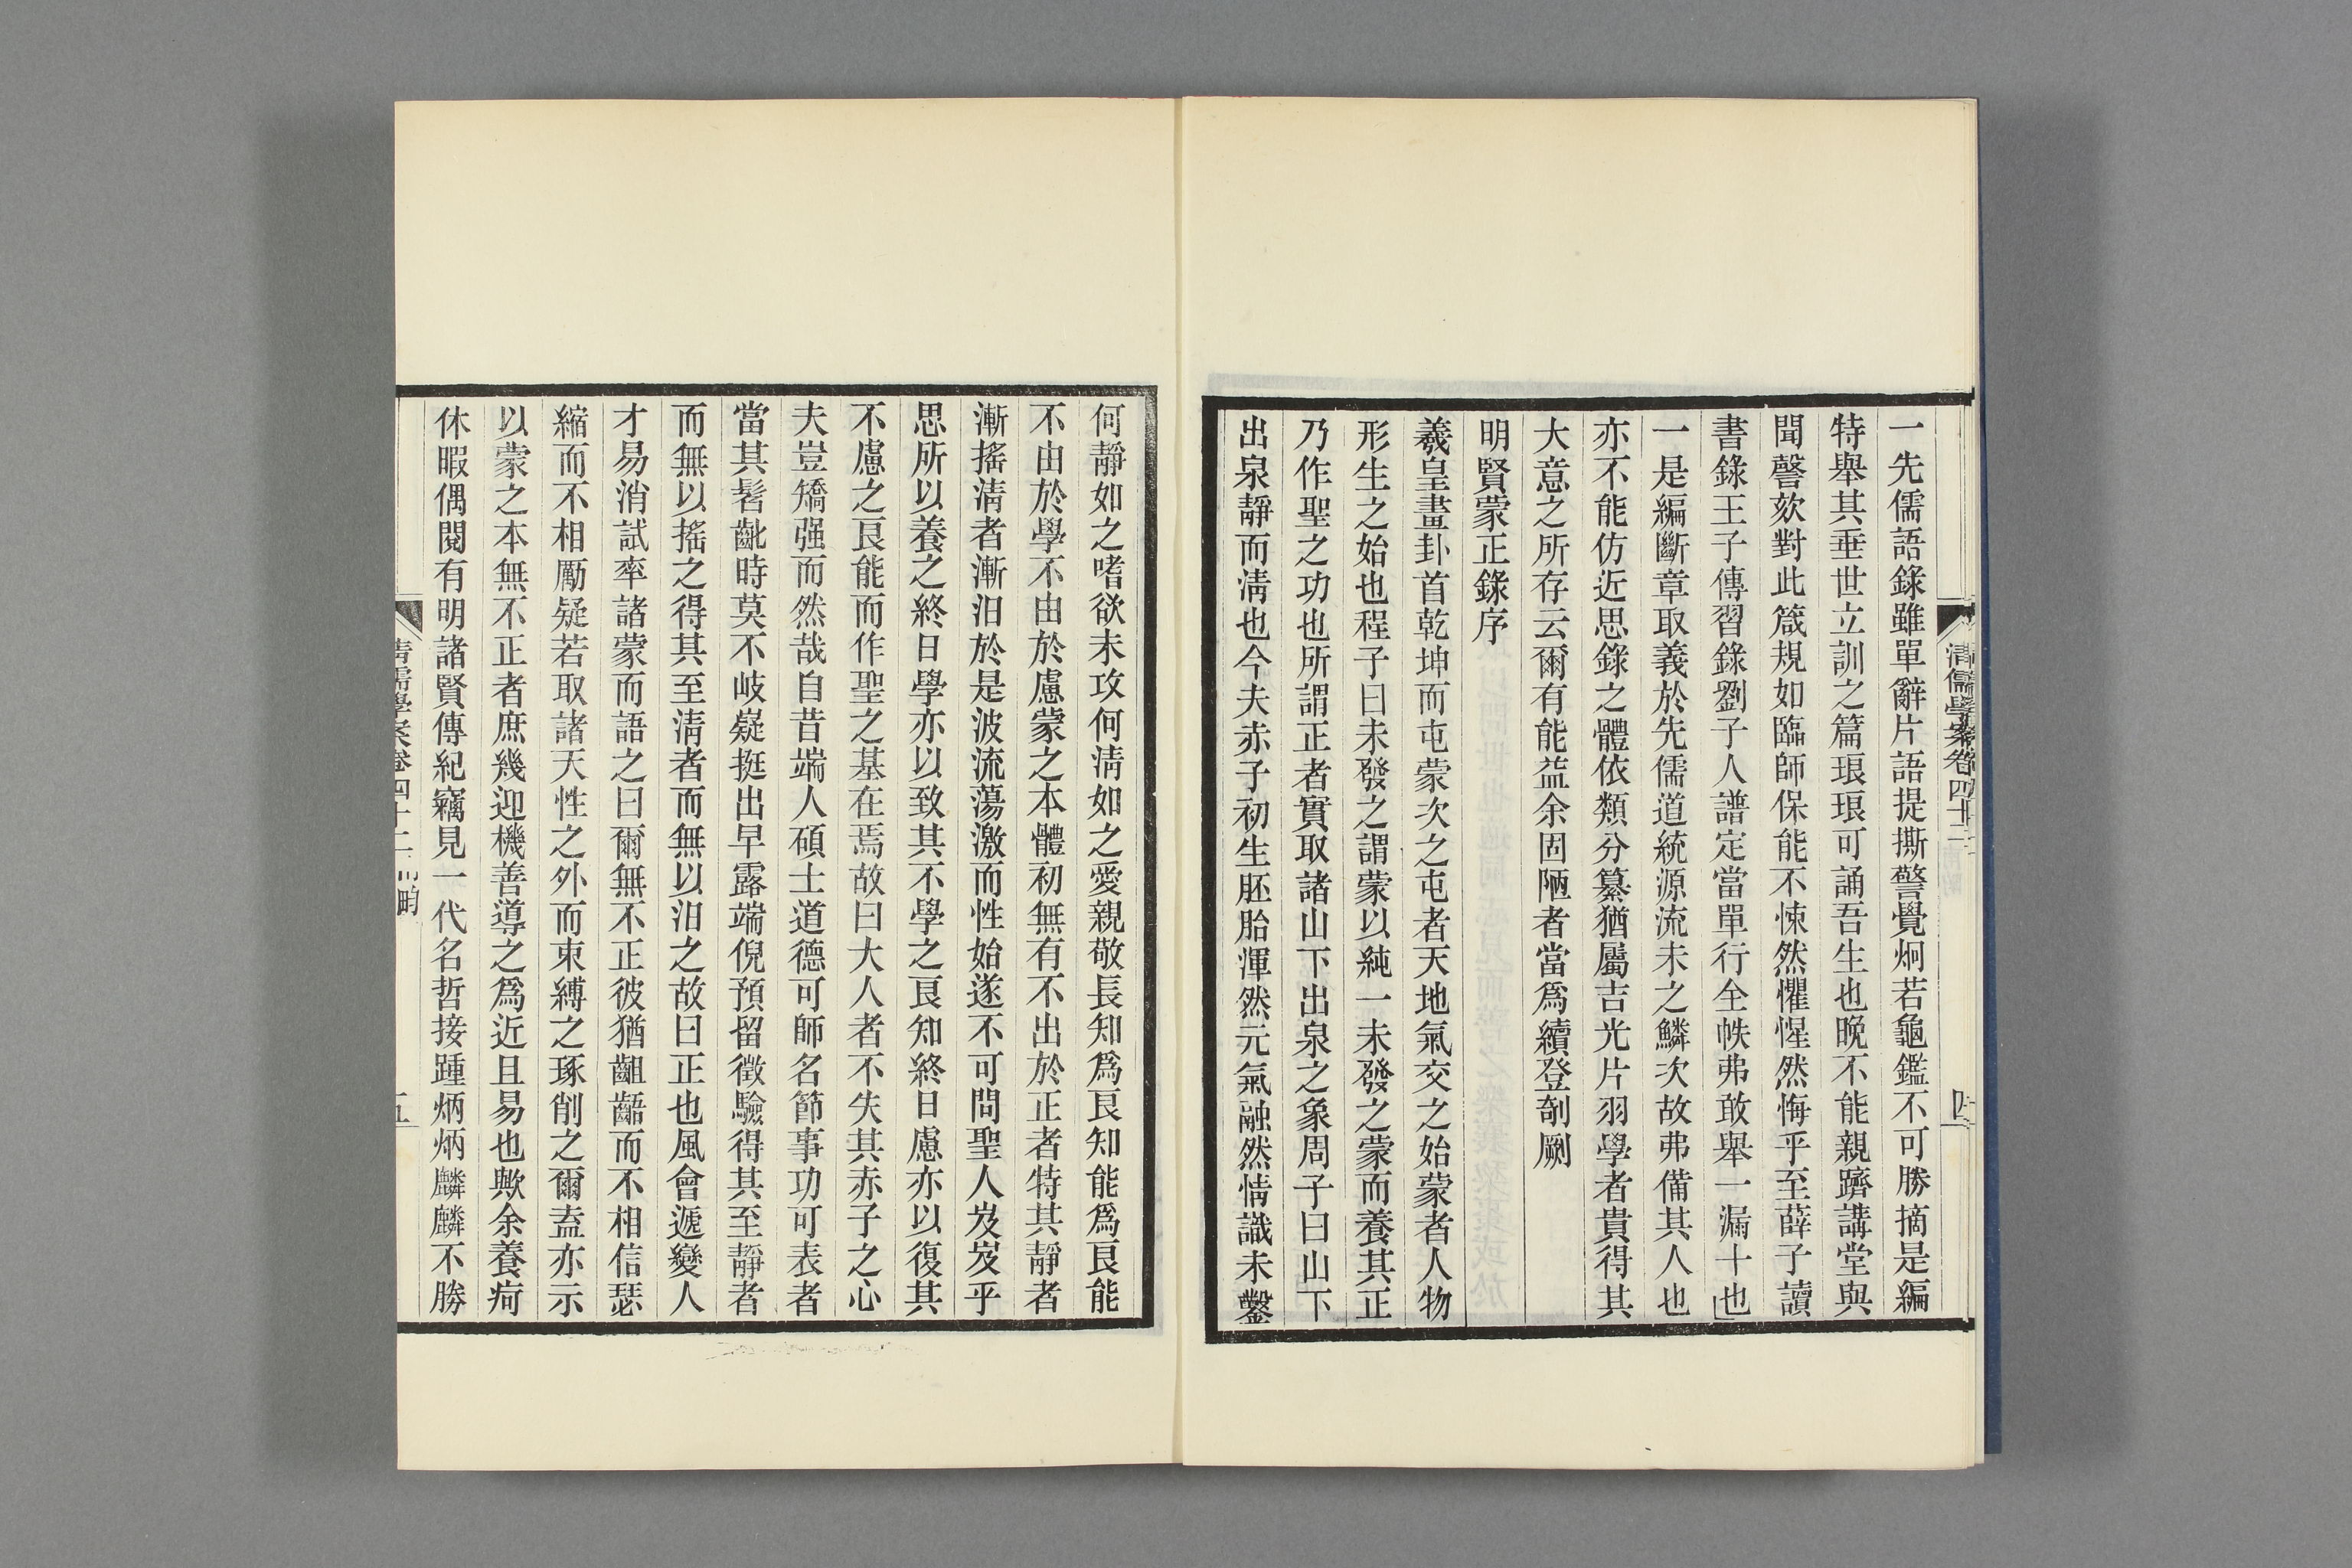 清儒學案卷四十二
一先儒語錄雖單辭片語提撕警覺炯若龜鑑不可勝摘是編
特舉其垂世立訓之篇琅琅可誦吾生也晚不能親躋講堂與
聞謦欬對此箴規如臨師保能不悚然懼惺然悔乎至薛子讀
書錄王子傳習錄劉子人譜定當單行全帙弗敢舉一漏十也
一是編斷章取義於先儒道統源流未之鱗次故弗備其人也
亦不能仿近思錄之體依類分纂猶屬吉光片羽學者貴得其
大意之所存云爾有能益余固陋者當爲續登剞劂
明賢蒙正錄序
羲皇畫卦首乾坤而屯蒙次之屯者天地氣交之始蒙者人物
形生之始也程子曰未發之謂蒙以純一未發之蒙而養其正
乃作聖之功也所謂正者實取諸山下出泉之象周子曰山下
出泉靜而淸也今夫赤子初生胚胎渾然元氣融然情識未鑿
何靜如之嗜欲未攻何淸如之愛親敬長知爲良知能爲良能
不由於學不由於慮蒙之本體初無有不出於正者特其靜者
漸搖淸者漸汨於是波流蕩激而性始遂不可問聖人岌岌乎
思所以養之終日學亦以致其不學之良知終日慮亦以復其
不慮之良能而作聖之基在焉故曰大人者不失其赤子之心
夫豈矯强而然哉自昔端人碩士道德可師名節事功可表者
當其髫齔時莫不岐嶷挺出早露端倪預留徵驗得其至靜者
而無以搖之得其至淸者而無以汨之故曰正也風會遞變人
才易消試率諸蒙而語之曰爾無不正彼猶齟齬而不相信瑟
縮而不相勵疑若取諸天性之外而束縛之琢削之爾盍亦示
以蒙之本無不正者庶幾迎機善導之爲近且易也歟余養疴
休暇偶閱有明諸賢傳紀竊見一代名哲接踵炳炳麟麟不勝
清儒學案卷四十二
五